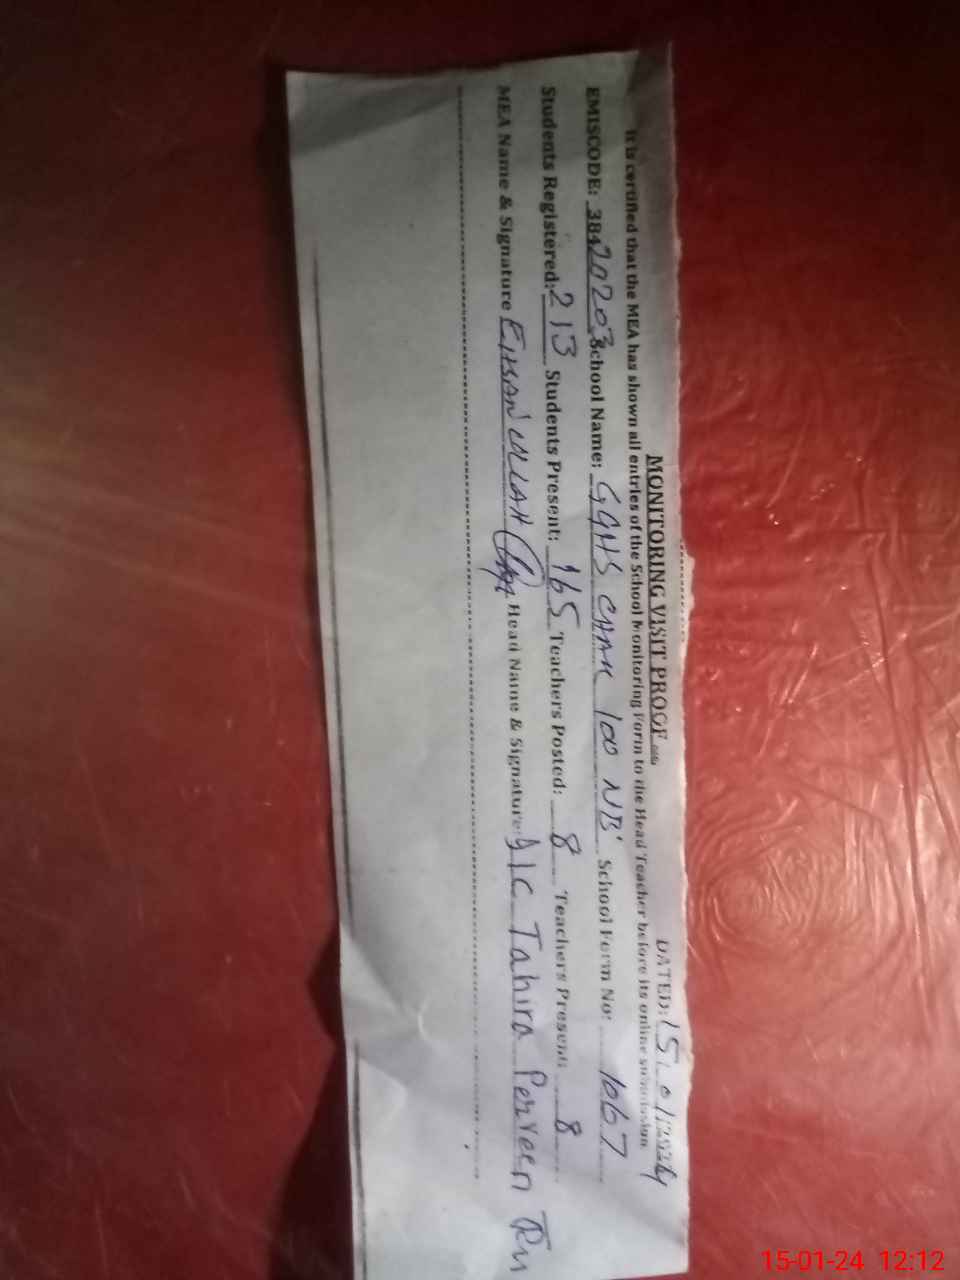 MONITORING VISIT PROOF DATED: 15.01.2024
It is certified that the MEA has shown all entries of the School Monitoring Form to the Head Teacher before its online submission
EMISCODE: 38420203 School Name: GGHS CHAK 100 NB School Form No: 1067
Students Registered: 213 Students Present: 165 Teachers Posted: 8 Teachers Present: 8
MEA Name & Signature EHSAN ULLAH Head Name & Signature: I/C Tahira Perveen
15-01-24 12:12